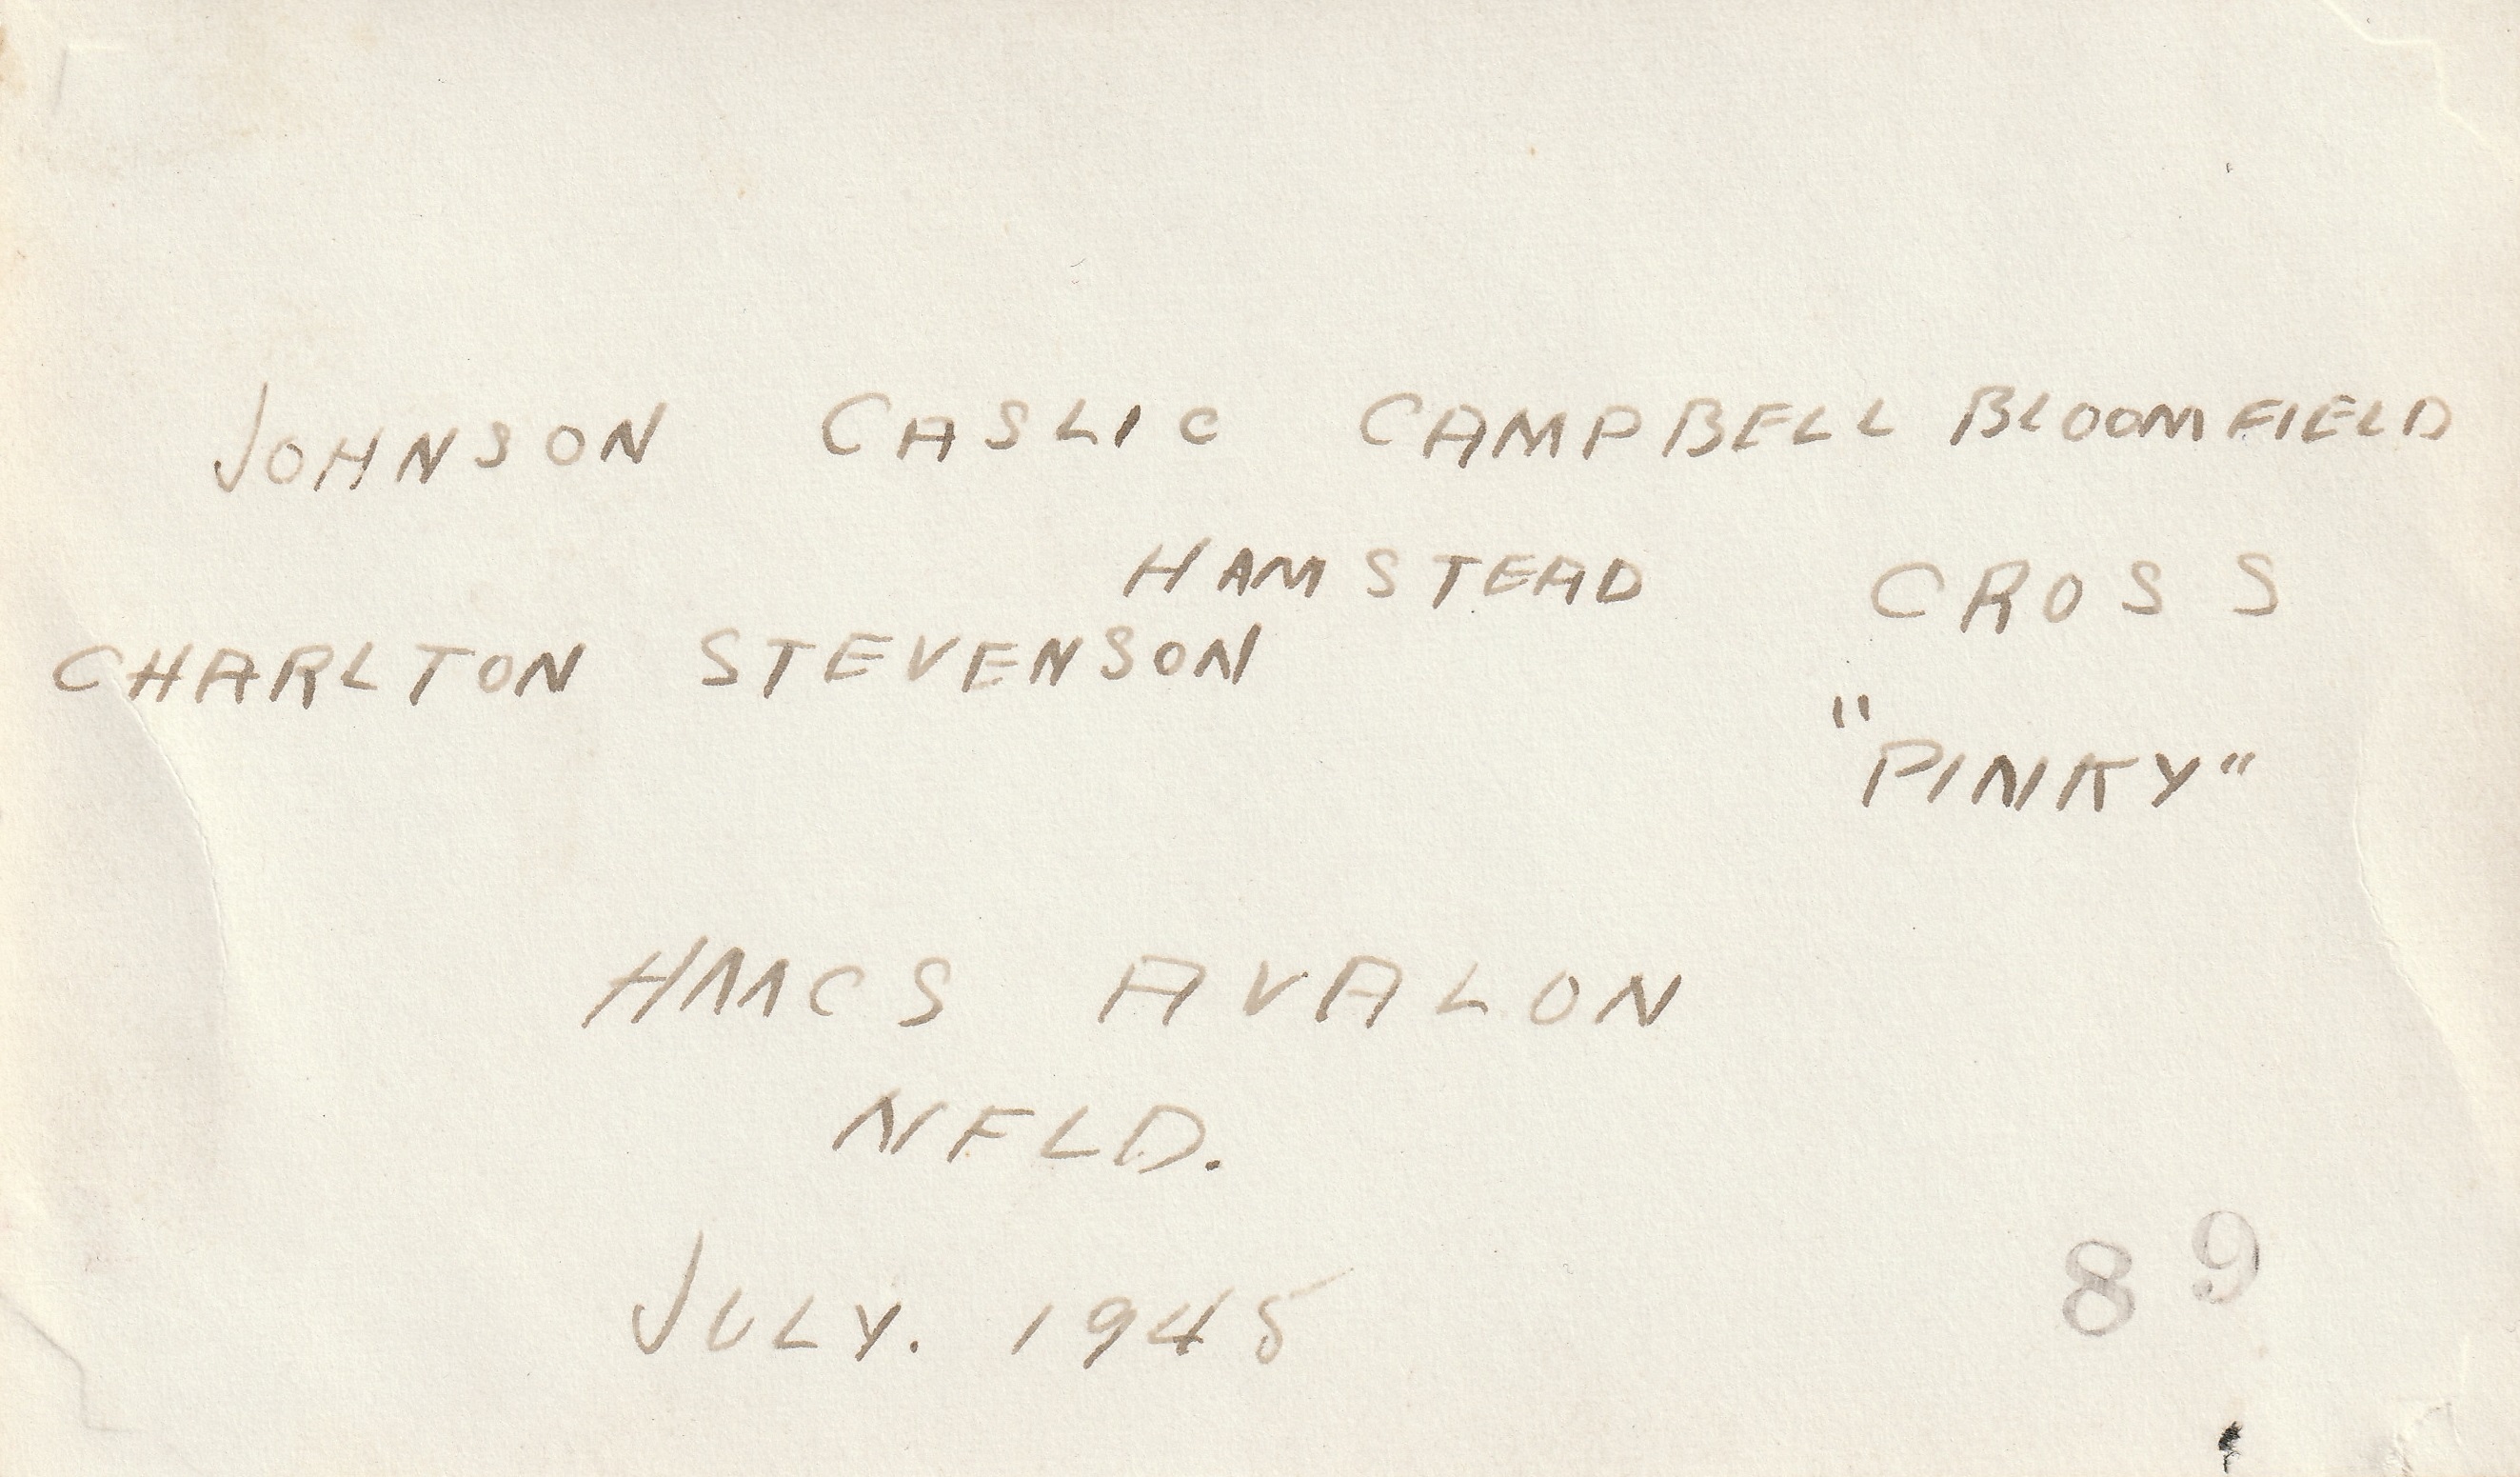 JOHNSON CASLIC CAMPBELL BLOOMFIELD
HAMSTEAD CROSS
CHARLTON STEVENSON
"PINKY"
HMCS AVALON
NFLD.
JULY. 1945
89